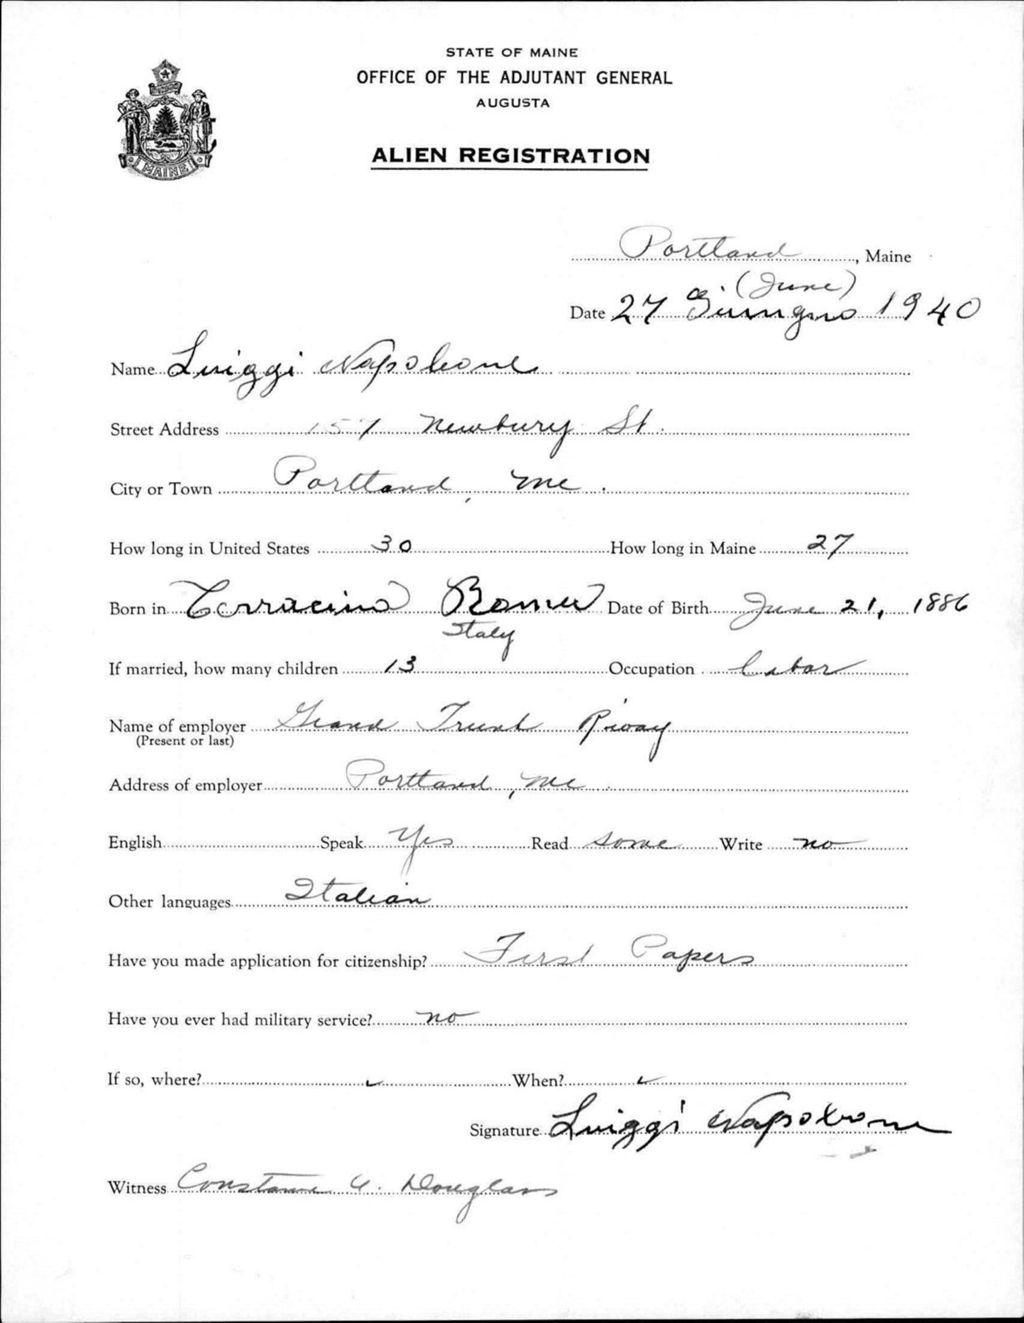 STATE OF MAINE
OFFICE OF THE ADJUTANT GENERAL
AUGUSTA
ALIEN REGISTRATION
MAINE
Portland, Maine
(June)
Date 27 Giungno 1940
Name Luiggi Napoleone
Street Address 157 Newbury St.
City or Town Portland, Me.
How long in United States 30 How long in Maine 27
Born in Terracino Date of Birth June 21, 1886
Italy
If married, how many children 13 Occupation Labor
Name of employer Grand Trunk Rway
(Present or last)
Address of employer Portland, Me.
English Speak Yes Read Some Write no
Other languages Italian
Have you made application for citizenship? First Papers
Have you ever had military service? no
If so, where? When?
Signature Luiggi Napoleone
Witness Constance A. Douglass